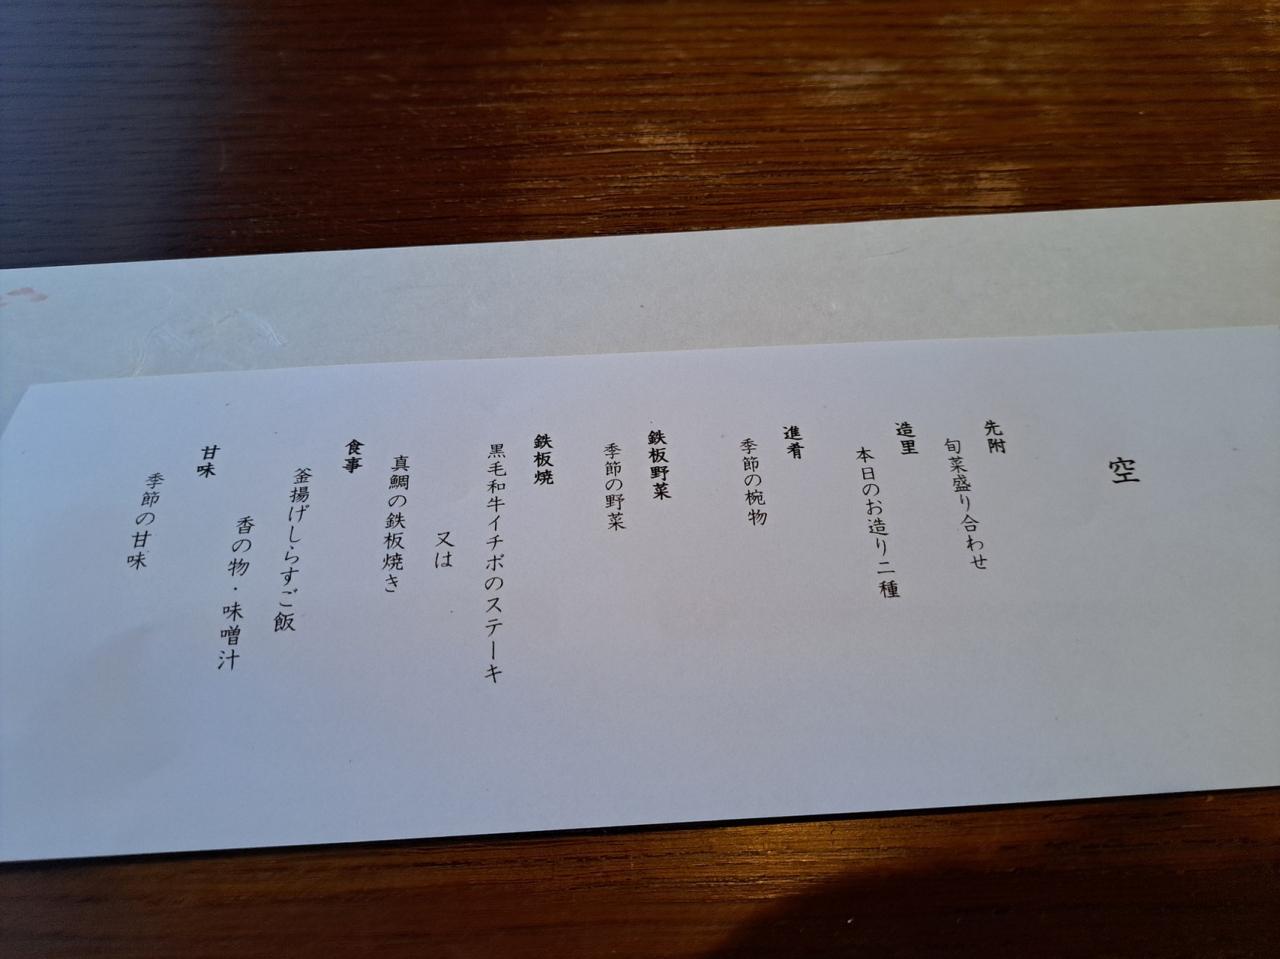 空
先附
旬菜盛り合わせ
造里
本日のお造り二種
進肴
季節の椀物
鉄板野菜
季節の野菜
鉄板焼
黒毛和牛イチボのステーキ
又は
真鯛の鉄板焼き
食事
釜揚げしらすご飯
香の物・味噌汁
甘味
季節の甘味